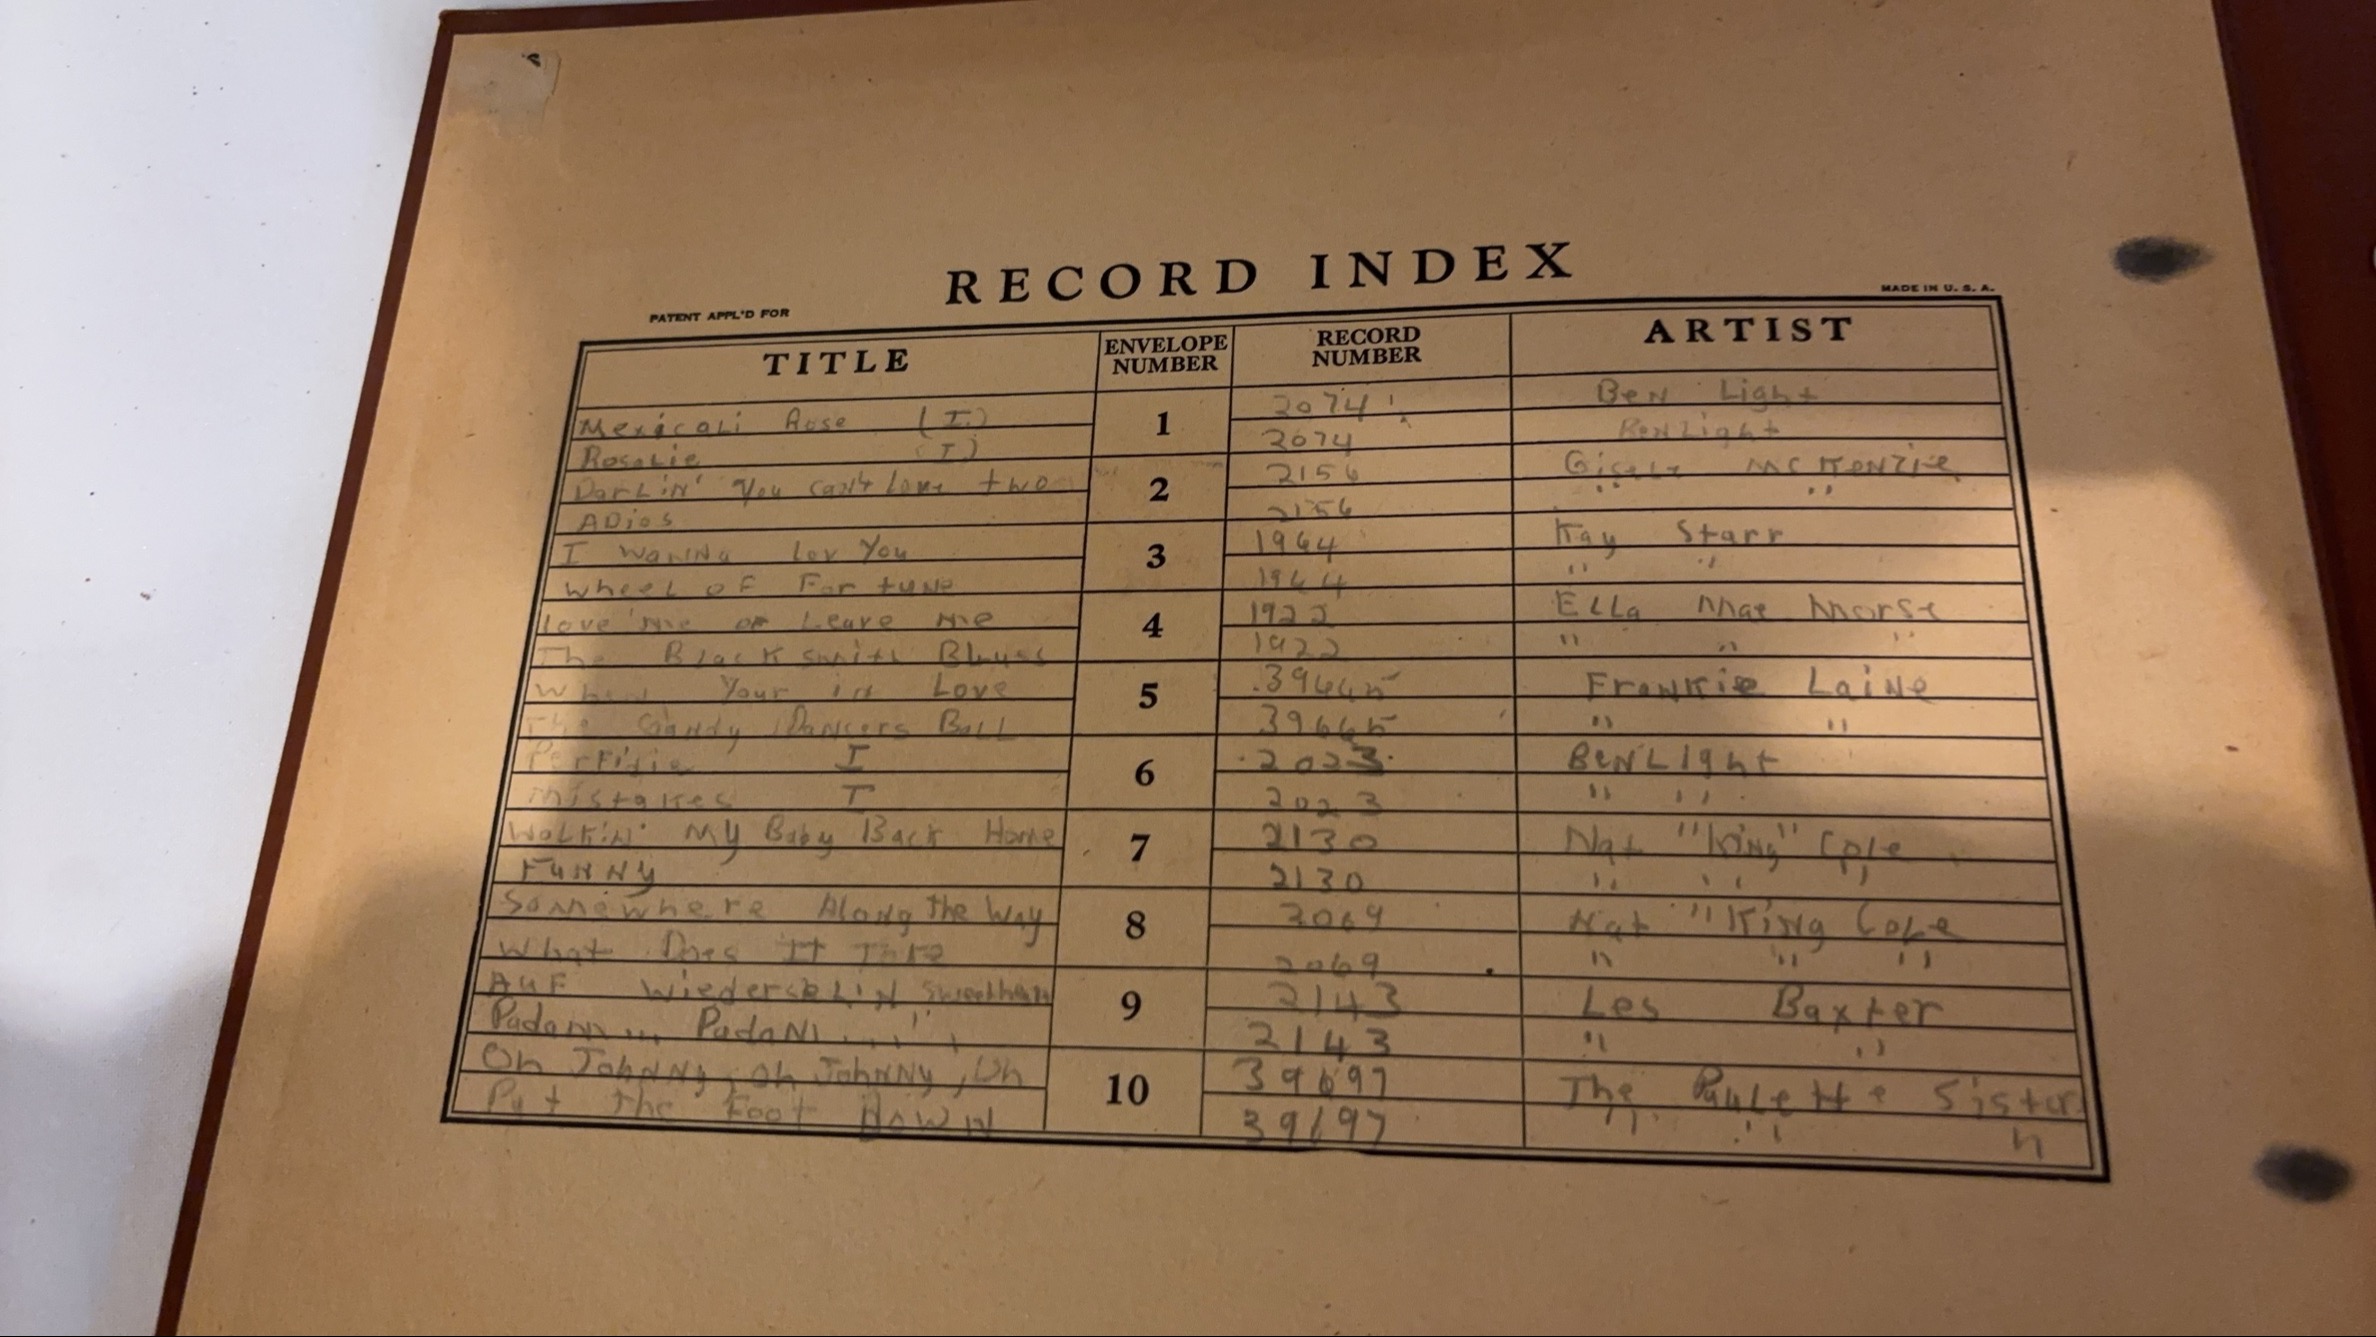 RECORD INDEX
PATENT APPL'D FOR
MADE IN U. S. A.
TITLE ENVELOPE NUMBER RECORD NUMBER ARTIST
Mexicali Rose (I.) 1 2074 Ben Light
Rosalie (I) 2074 Ben Light
Darlin' You can't love two 2 2156 Gisele McKenzie
ADios 2156 " "
I Wanna Lov You 3 1964 Kay Starr
Wheel of Fortune 1964 " "
Love me or Leave me 4 1922 Ella Mae Morse
The Blacksmith Bluess 1922 " " "
When Your in Love 5 39665 Frankie Laine
The Gandy Dancers Ball 39665 " "
Perfidie I 6 2023 Ben Light
Mistakes I 2023 " "
Walkin' My Baby Back Home 7 2130 Nat "King" Cole
FUNNY 2130 " " "
Somewhere Along The Way 8 2069 Nat "King Cole
What Does It Take 2069 " " "
AUF Wiedersehin Sweetheart 9 2143 Les Baxter
Padam... Padam... 2143 " "
Oh Johnny, Oh Johnny, Oh 10 39697 The Paulette Sisters
Put The Foot DOWN 39697 " " "